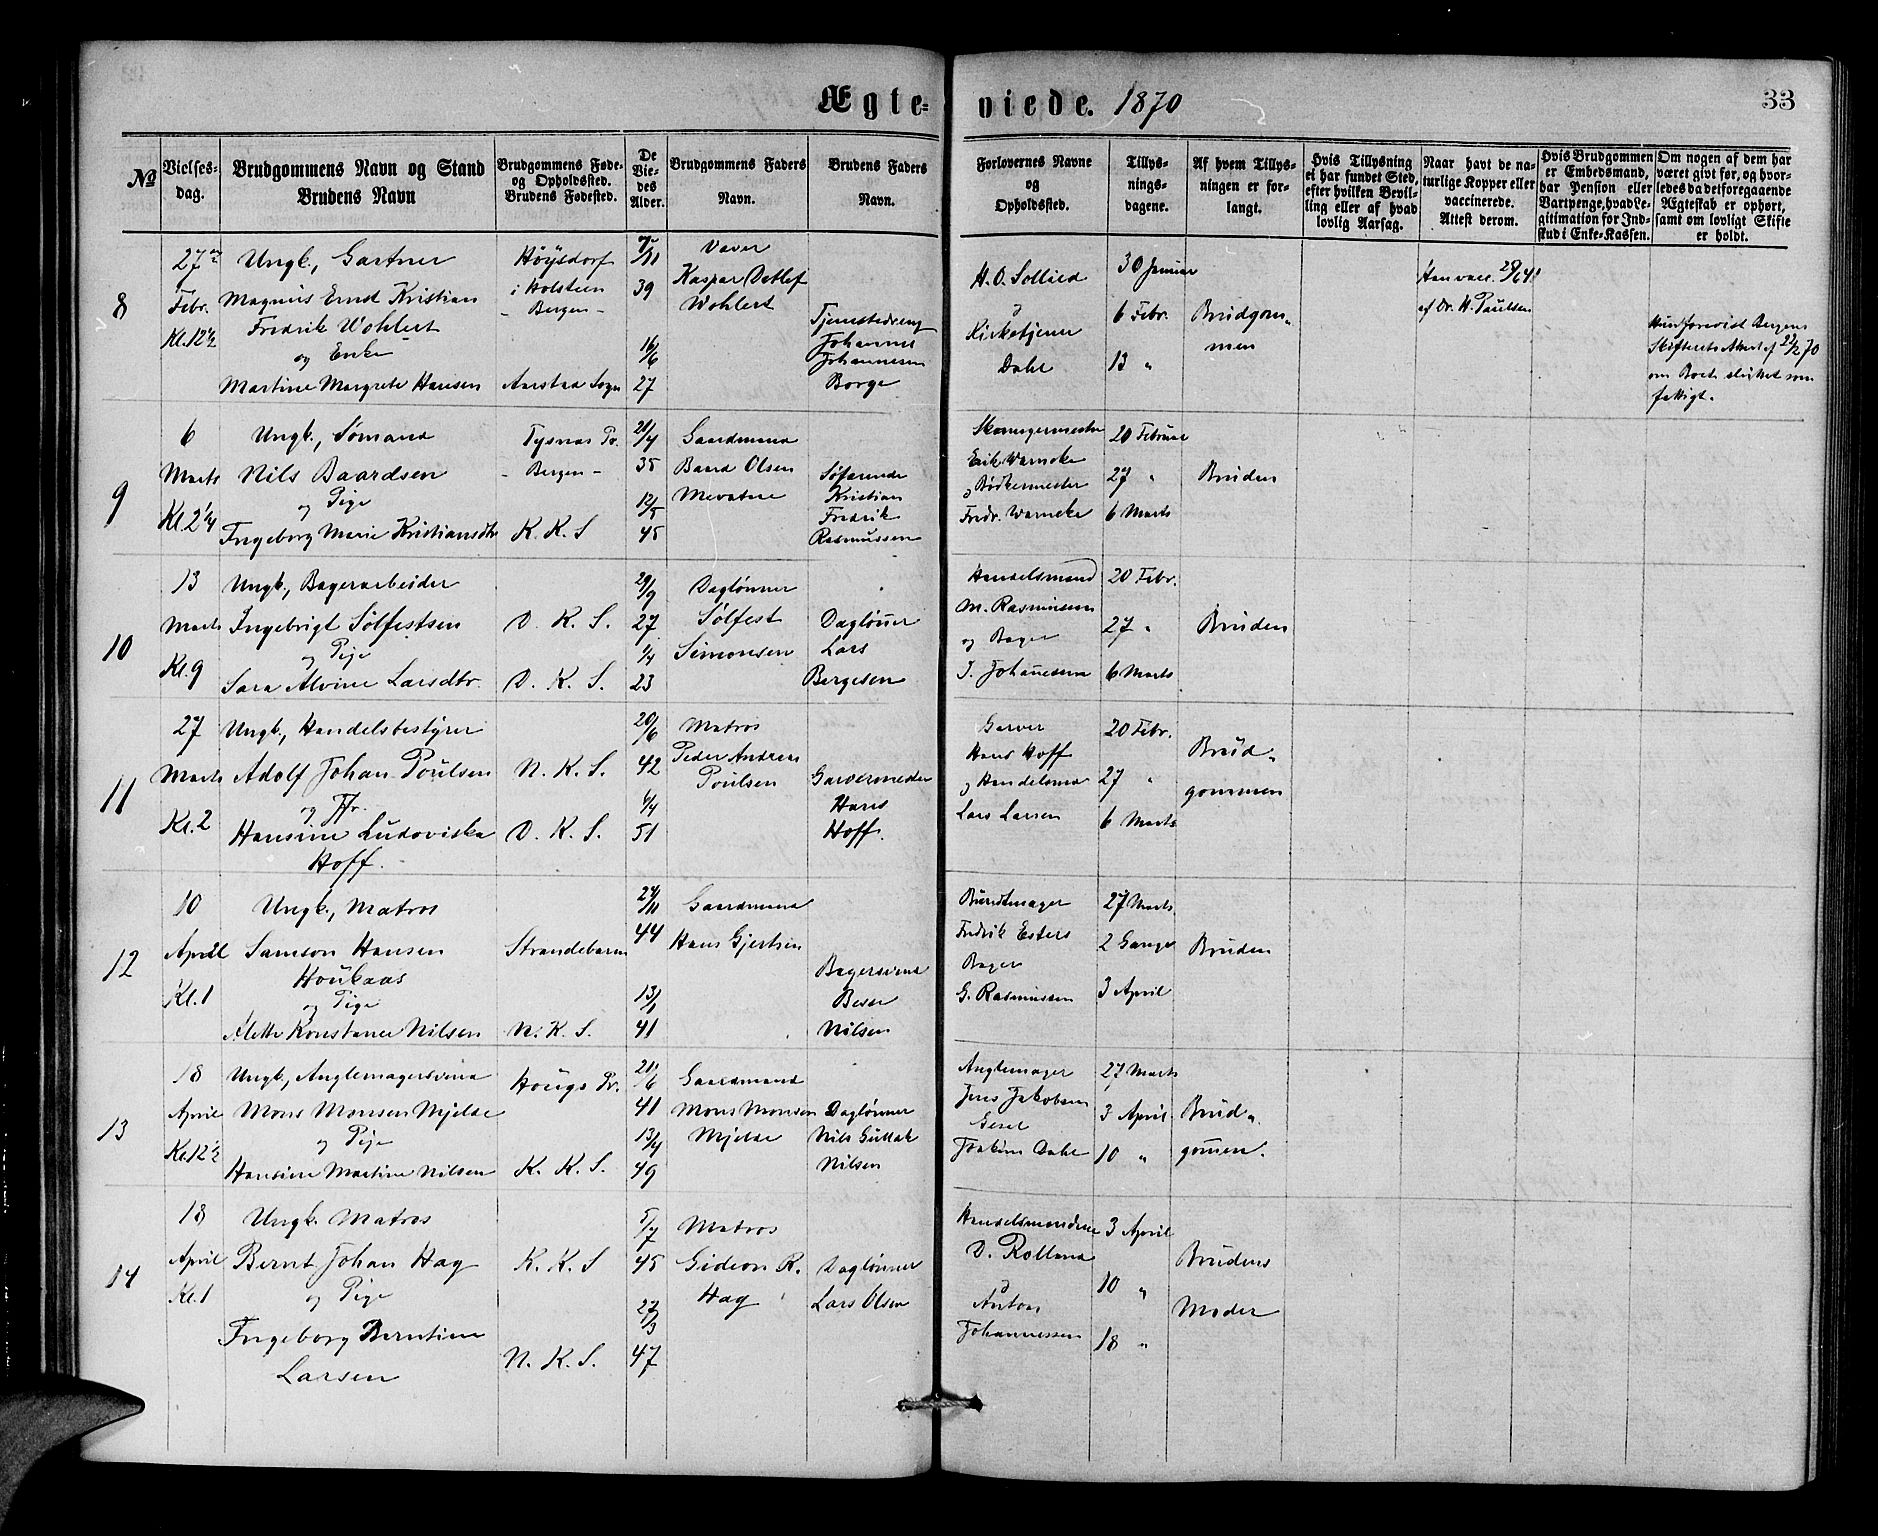 Ægte-
viede. 1870
33
No
Vielses-
dag.
Brudgommens Navn og Stand
Brudens Navn
Brudgommens Føde-
og Opholdssted.
Brudens Fødested.
De
Vie-
des
Alder.
Brudgommens Faders
Navn.
Brudens Faders
Navn.
Forlovernes Navne
og
Opholdssted.
Tillys-
nings-
dagene.
Af hvem Tillys-
ningen er for-
langt.
Hvis Tillysning
ei har fundet Sted,
efter hvilken Bevil-
ling eller af hvad
lovlig Aarsag.
Naar havt de na-
turlige Kopper eller
vaccinerede.
Attest derom.
Hvis Brudgommen
er Embedsmand,
har Pension eller
Vartpenge, hvad Le-
gitimation for Ind-
skud i Enke-Kassen.
Om nogen af dem har
været givt før, og hvor-
ledes da det foregaaende
Ægteskab er ophørt,
samt om lovligt Skifte
er holdt.
8
27de
Febr.
Kl. 12½
Ungk., Gartner
Magnus Ernst Kristian
Fredrik Wohlert
og Enke
Martine Margrete Hansen
Höysdorf
i Holsteen
- Bergen -
Aarstad Sogn
39
16/6
27
Væver
Kaspar Detlef
Wohlert
Johannes
Johannesen
Borge
H. O. Sollied
Kirketjener
Dahl
30 Januar
6 Febr.
13 "
Brudgom-
men
af Dr. H. Paulsen
Hun forevist Bergens
Skifterets Attest af 22/2 70
om Boets sluttet som
fattigt.
9
6
Marts
Kl. 2¼
Ungk., Sømand
Nils Baardsen
og Pige
Ingeborg Marie Kristiansdtr
Tysnæs Pr.
- Bergen -
K. K. S
35
12/5
45
Gaardmand
Baard Olsen
Mevatne
Søfarende
Kristian
Fredrik
Rasmussen
Skomagermester
Erik Warncke
Bødkermester
Fredr. Warncke
20 Februar
27 "
6 Marts
Bruden
10
13
Marts
Kl. 9
Ungk., Bagerarbeider
Ingebrigt Sølfestsen
og Pige
Sara Alvine Larsdtr.
D. K. S.
D. K. S.
29/9
27
1/4
23
Daglønner
Sølfest
Simonsen
Daglønner
Lars
Bergesen
Handelsmand
M. Rasmussen
og Bager
J. Johannesen
20 Febr.
27 "
6 Marts
Bruden
11
27
Marts
Kl. 2
Ungk., Handelsbestyrer
Adolf Johan Poulsen
og Fr.
Hansine Ludoviska
Hoff.
N. K. S.
D. K. S.
20/6
42
51
Matros
Peder Andreas
Poulsen
Garvermester
Hans
Hoff.
Garver
Hans Hoff
Lars Larsen
20 Febr.
27 "
6 Marts
Brud-
gommen
12
10
April
Kl. 1
Ungk., Matros
Samson Hansen
Houkaas
og Pige
Alette Konstance Nilsen
Strandebarm
N. K. S.
24/11
44
41
Gaardmand
Hans Gjertsen
Bagersvend
Nilsen
Buntmager
Fredrik Esters
Bager
G. Rasmussen
27 Marts
2 Gange
3 April
Bruden
13
18
April
Kl. 12½
Ungk., Anglemagersvend
Mons Monsen Mjelde
og Pige
Hansine Martine Nilsen
Hougs Pr.
K. K. S.
41
13/4
49
Gaardmand
Mons Monsen
Mjelde
Daglønner
Nils Gullak
Nilsen
Anglemager
Jens Jakobsen
Joakim Dahl
27 Marts
3 April
10 "
Brud-
gommen.
14
18
April
Kl. 1
Ungk. Matros
Bernt Johan Hag
og Pige
Ingeborg Berntine
Larsen
K. K. S
N. K. S.
5/7
45
27/3
47
Matros
Gideon R.
Hag
Daglønner
Lars Olsen
Handelsmændene
D. Rolland
Anton
Johannessen
3 April
10 "
18 "
Brudens
Moder